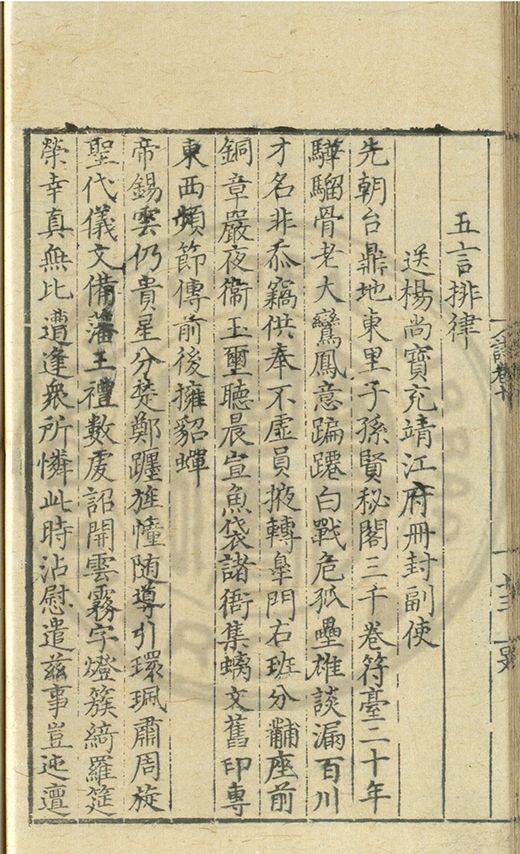 五言排律
送楊尚寶充靖江府冊封副使
先朝台鼎地東里子孫賢秘閣三千卷符臺二十年
驊騮骨老大鸞鳳意蹁躚白戰危孤壘雄談漏百川
才名非忝竊供奉不虛員掖轉皐門右班分黼座前
銅章嚴夜衛玉璽聽晨宣魚袋諸衙集螭文舊印專
東西頻節傳前後擁貂蟬
帝錫雲仍貴星分楚鄭躔旌幢随導引環珮肅周旋
聖代儀文備藩王禮數䖍詔開雲霧字燈簇綺羅筵
榮幸真無比遭逢衆所憐此時沾慰遣兹事豈迍邅